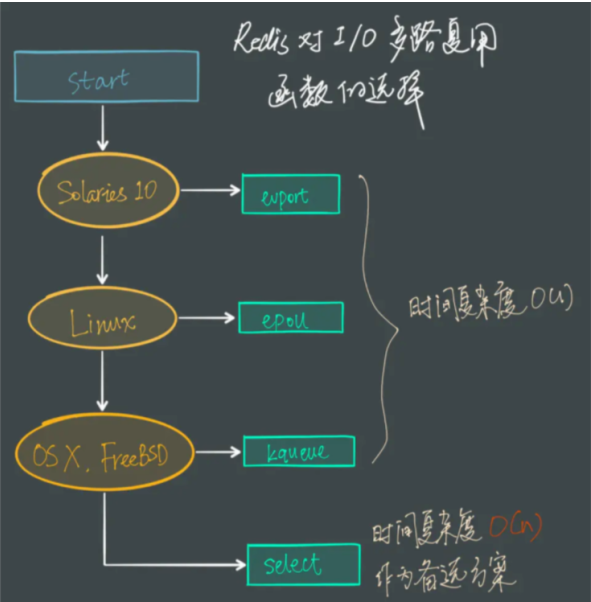 Redis 对 I/O 多路复用
函数的选择
start
Solaries 10
evport
Linux
epoll
时间复杂度 O(1)
OS X, FreeBSD
kqueue
时间复杂度 O(n)
select
作为备选方案